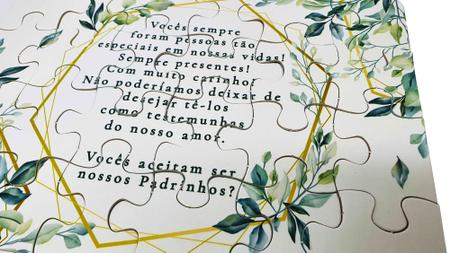 Vocês sempre
foram pessoas tão
especiais em nossas vidas!
Sempre presentes!
Com muito carinho!
Não poderíamos deixar de
desejar tê-los
como testemunhas
do nosso amor.
Vocês aceitam ser
nossos Padrinhos?